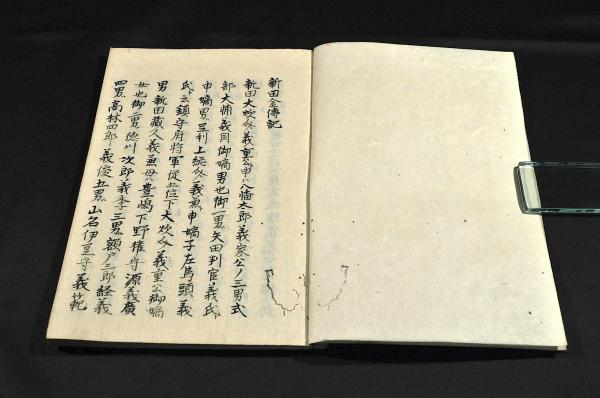 新田金傳記
新田大炊介義重公申ハ八幡太郎義家公ノ三男式
部大輔義国御嫡男也御二男矢田判官義氏
申嫡男足利上総介義兼申嫡子左馬頭義
氏ト云鎮守府将軍従五位下大炊介義重公御嫡
男新田蔵人義兼母ハ豊嶋下野権守源義廣
女也御二男徳川次郎義季三男額戸三郎経義
四男高林四郎義俊五男山名伊豆守義範